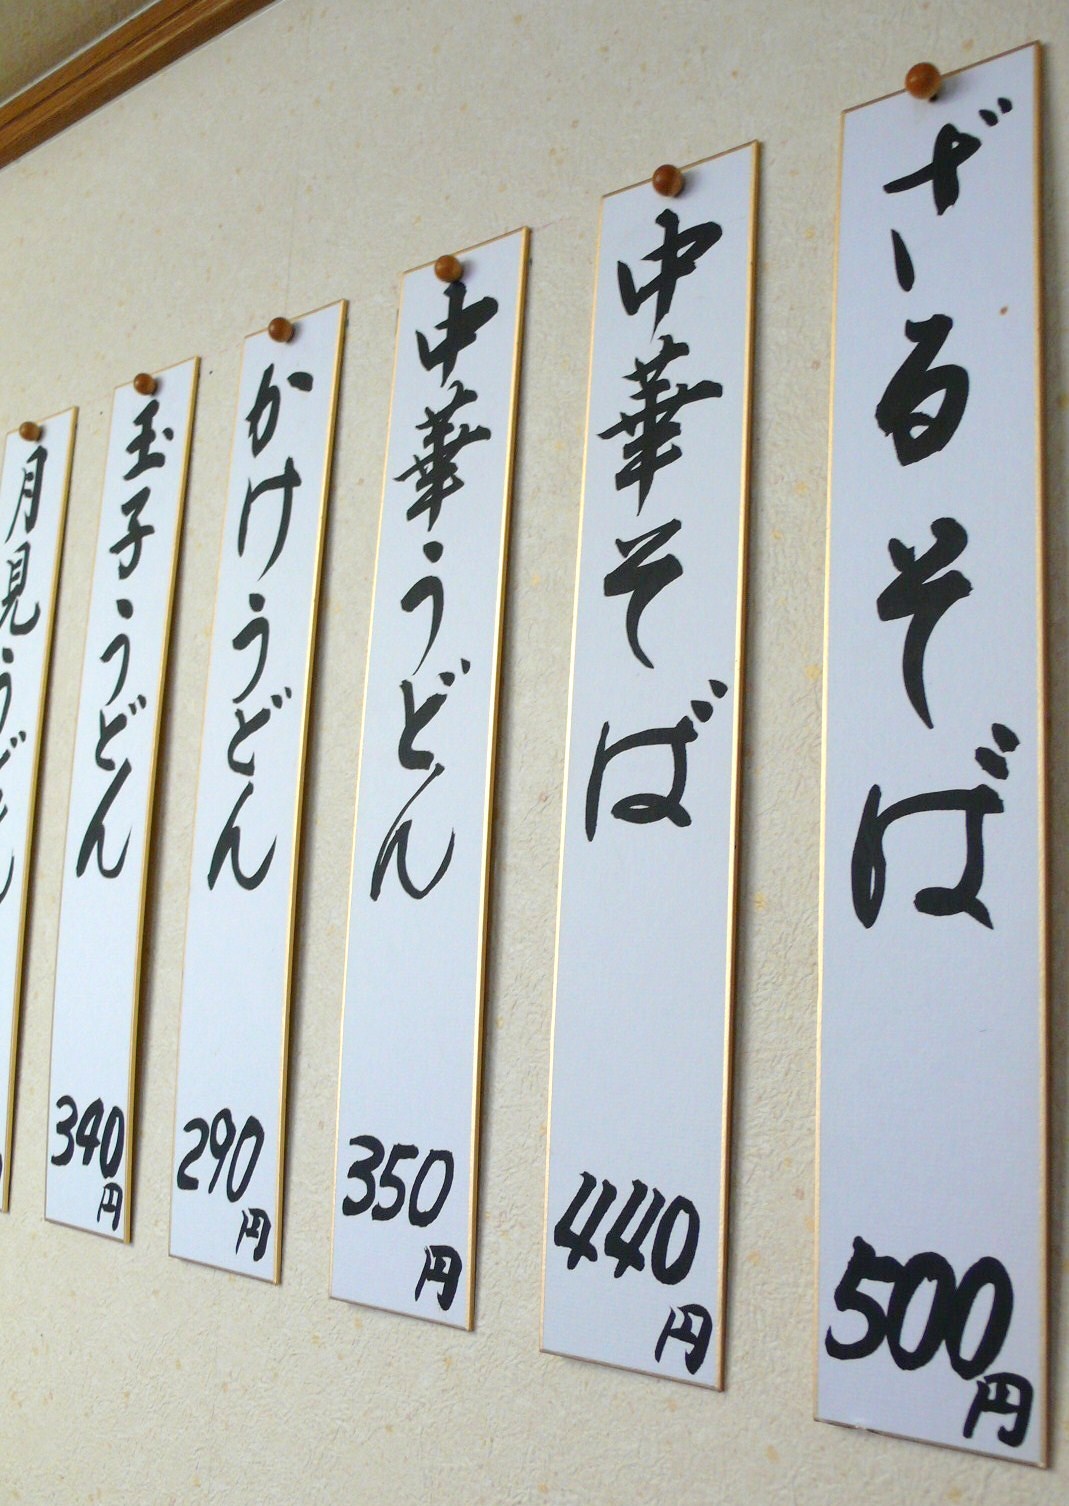 ざるそば
500円
中華そば
440円
中華うどん
350円
かけうどん
290円
玉子うどん
340円
月見うどん